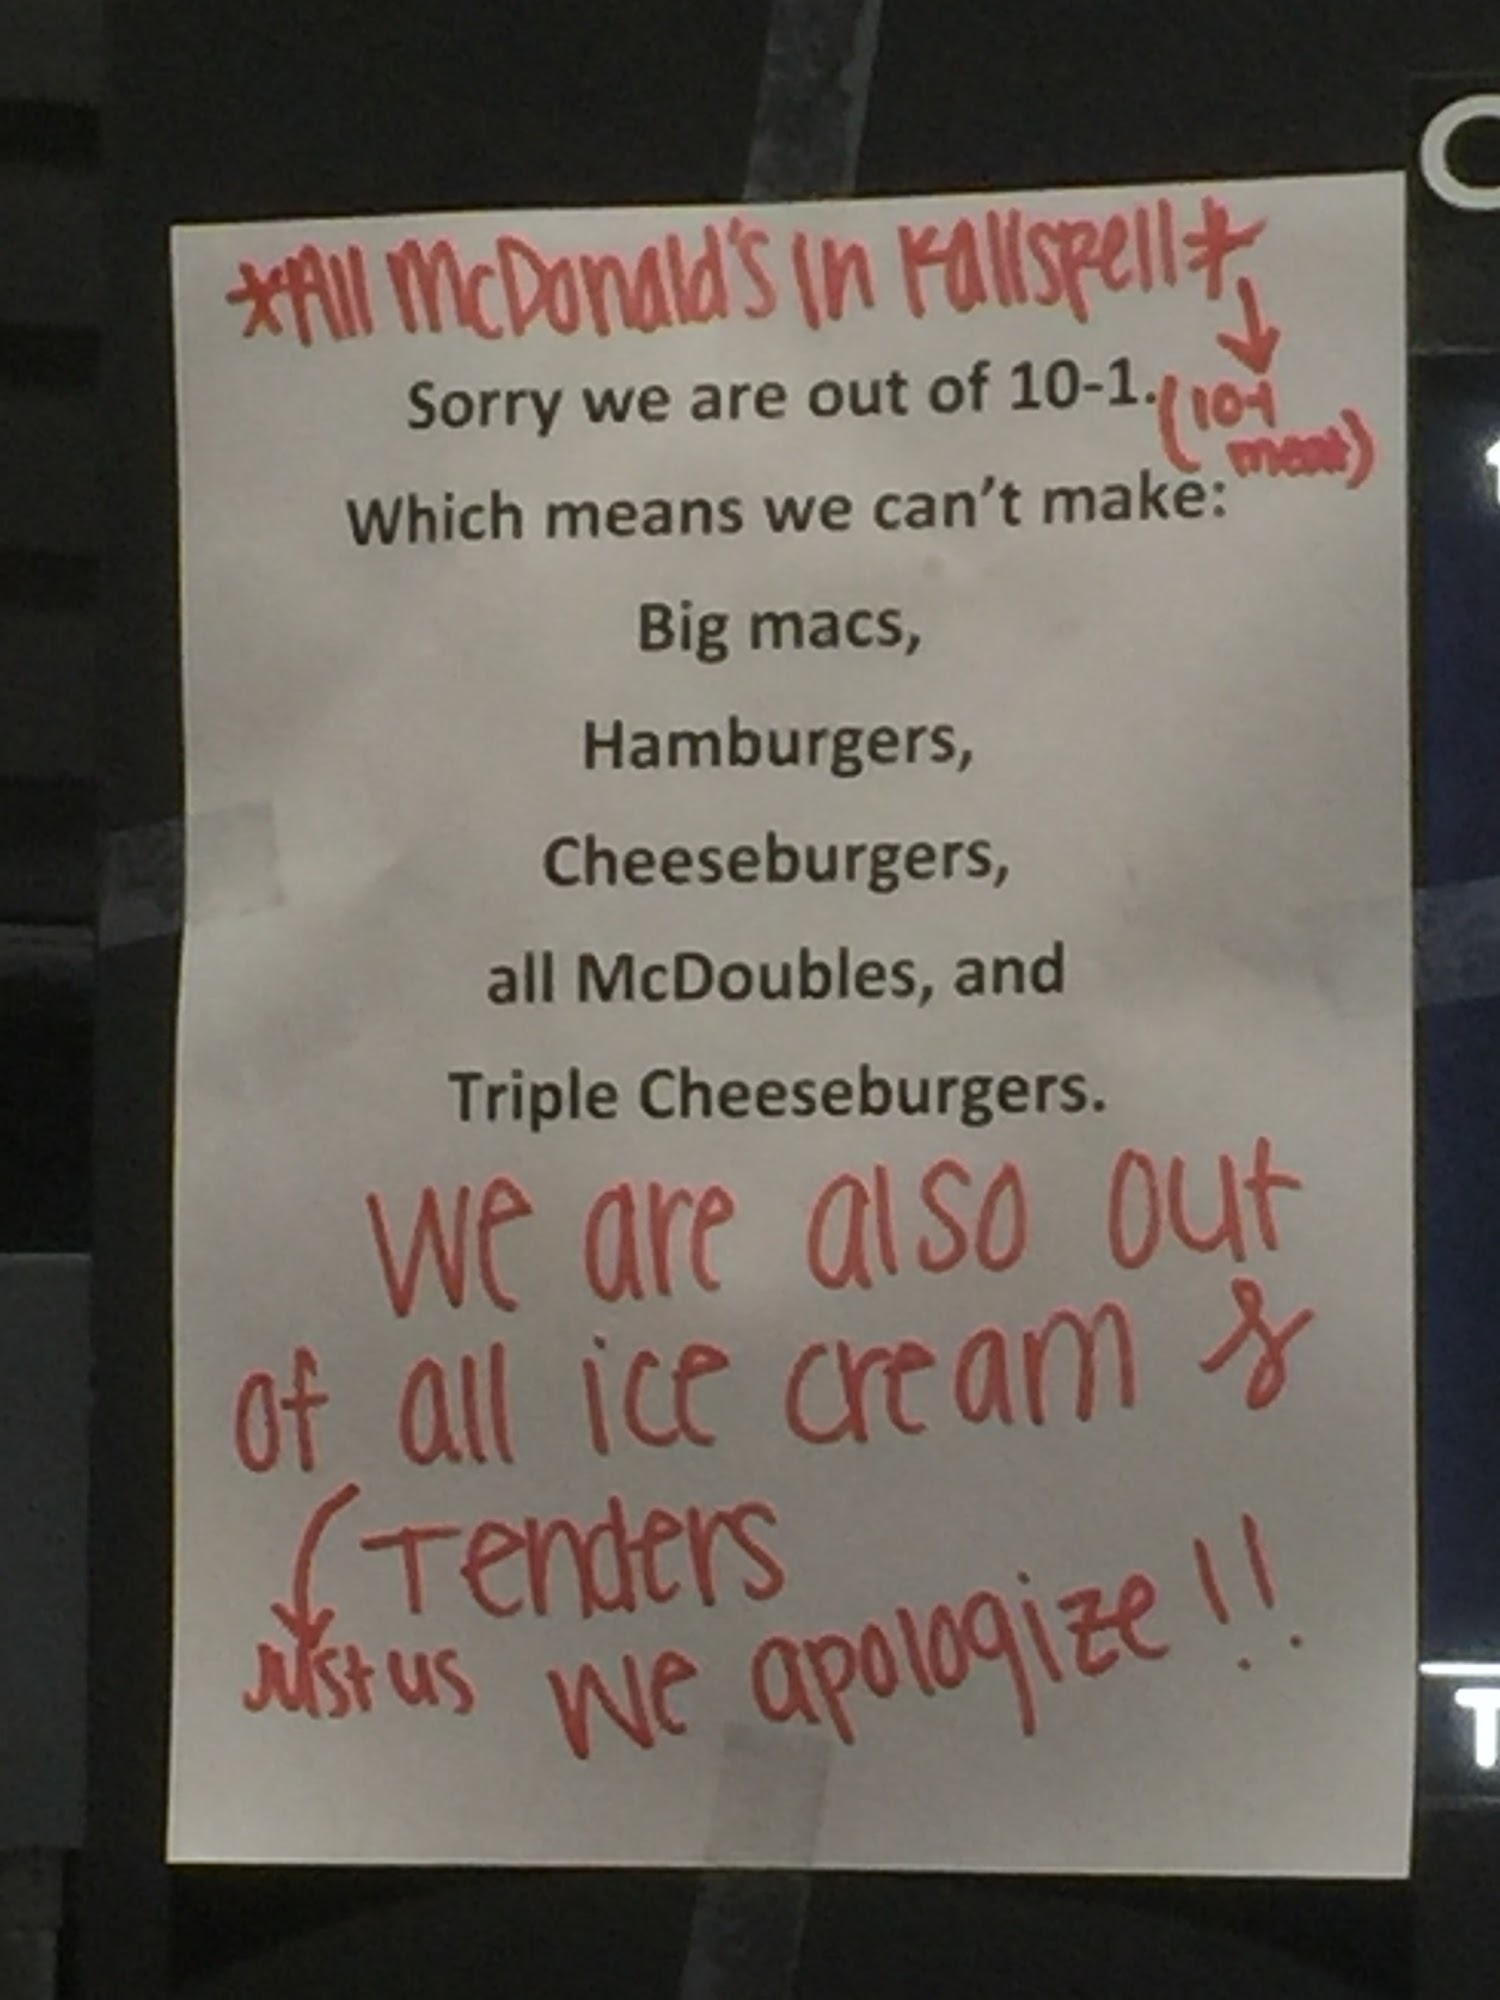 *All McDonald's in Kallspell*
Sorry we are out of 10-1. (10-1
meat)
Which means we can't make:
Big macs,
Hamburgers,
Cheeseburgers,
all McDoubles, and
Triple Cheeseburgers.
We are also out
of all ice cream &
Tenders
Just us We apologize!!